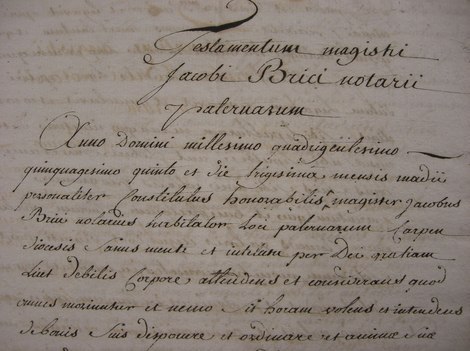 Testamentum magistri
Jacobi Brici notarii
paternarum
Anno domini millesimo quadrigentesimo
quinquagesimo quinto et die trigesima mensis madii
personaliter Constitutus honorabilis magister Jacobus
Brici notarius habitator loci paternarum Carpen
diocesis Sanus mente et intellectu per Dei gratiam
licet debilis Corpore, attendens et considerans quod
omnes moriuntur et nemo horam volens et intendens
de bonis suis disponere et ordinare et animæ suæ